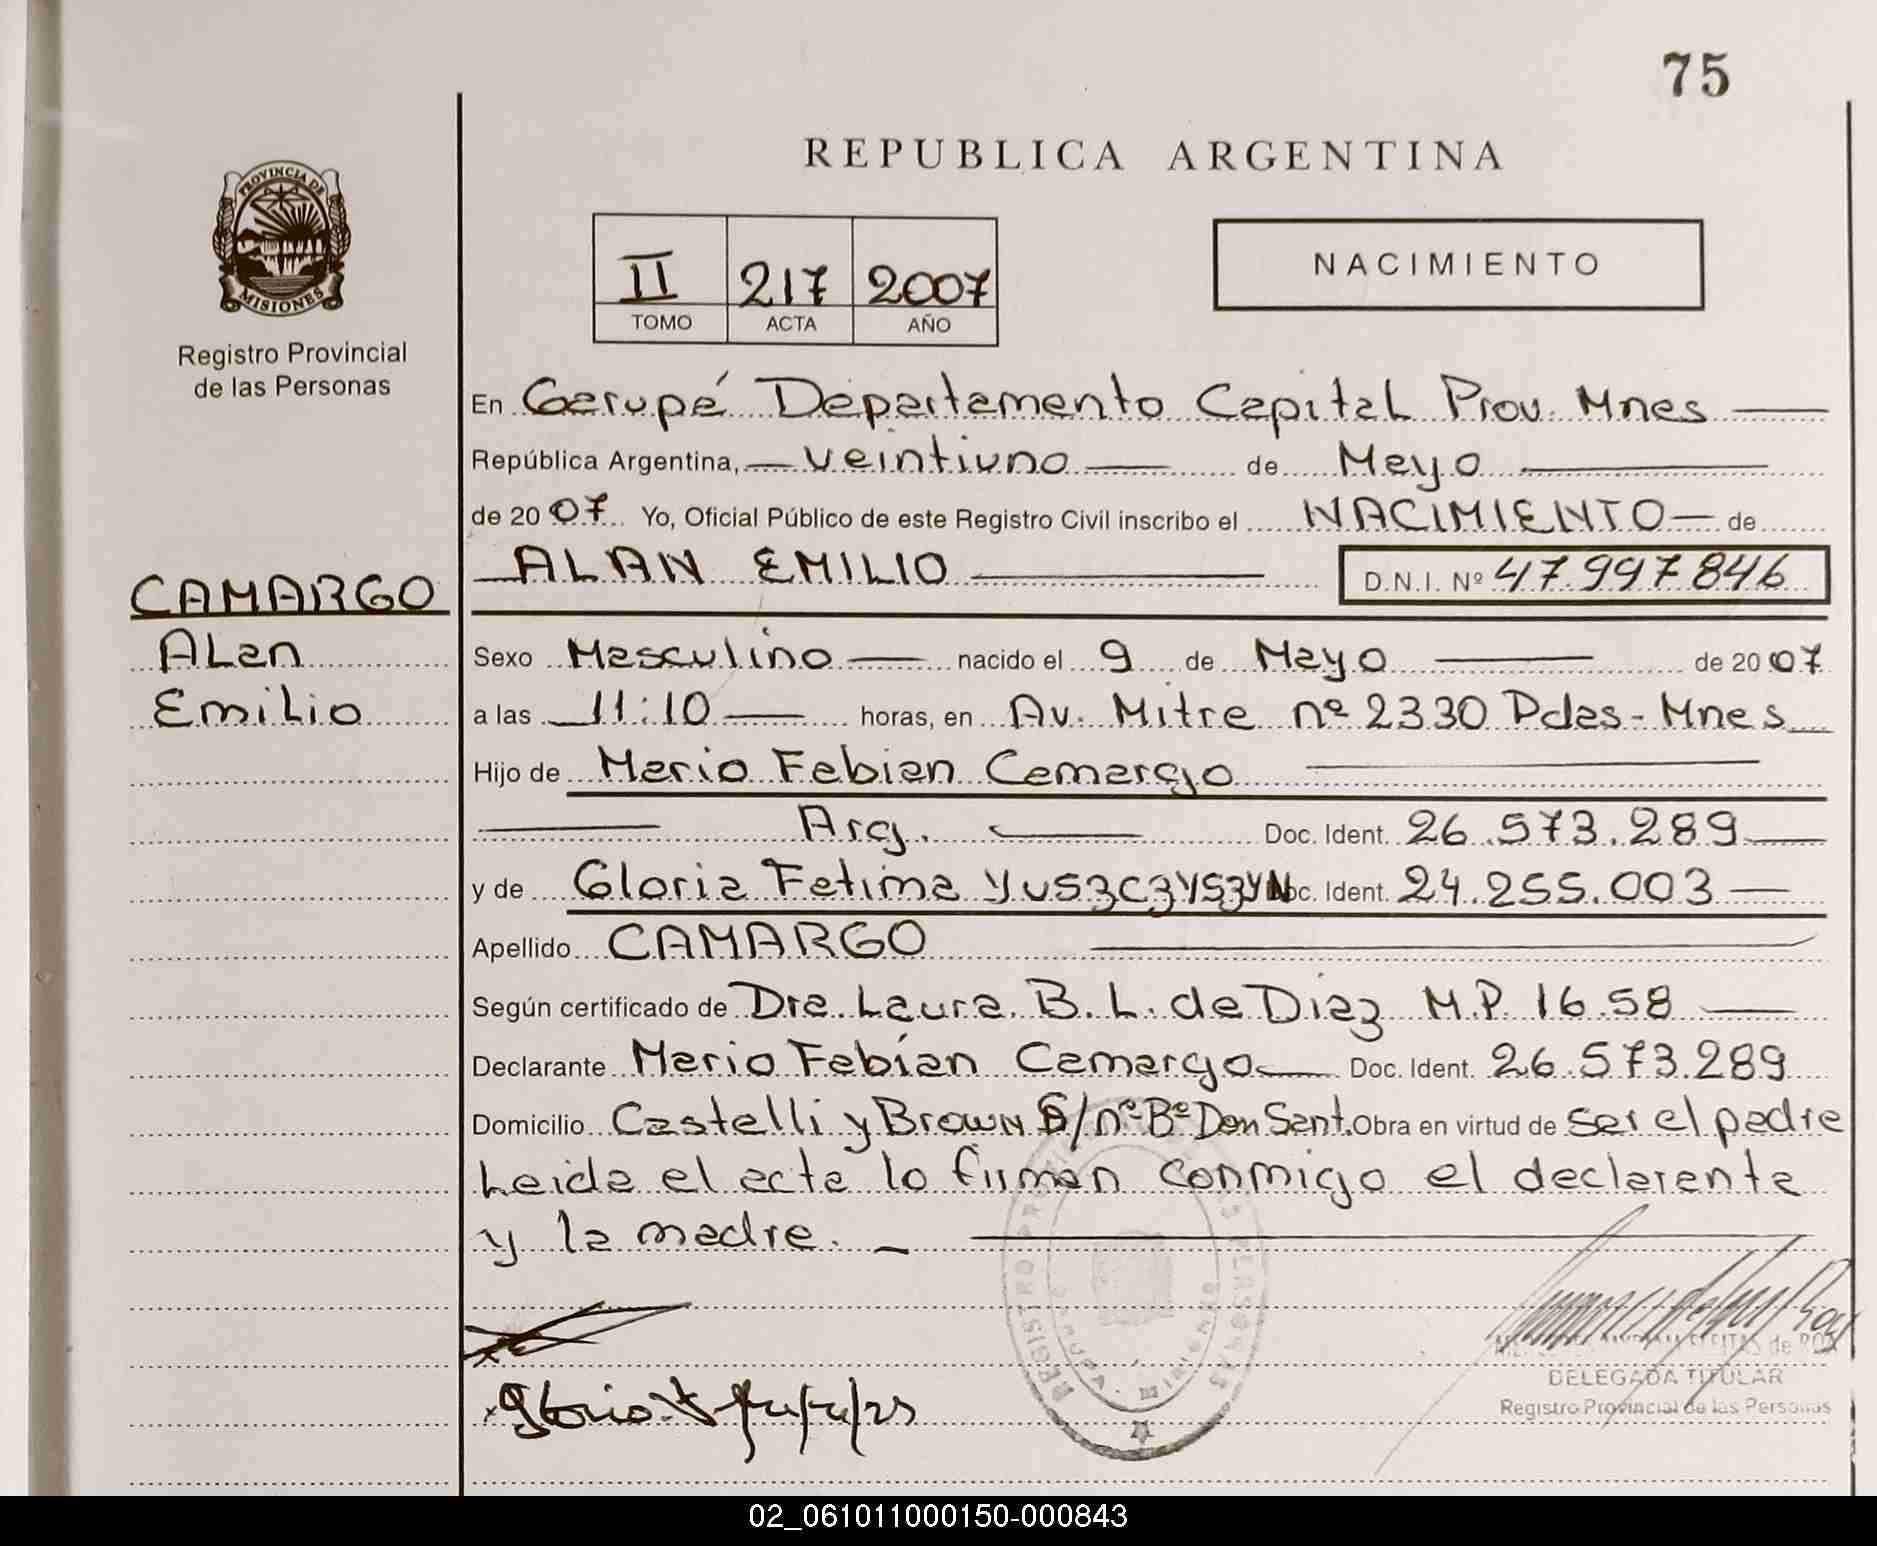 75
REPUBLICA ARGENTINA
PROVINCIA DE
MISIONES
Registro Provincial
de las Personas
II 217 2007
TOMO ACTA AÑO
NACIMIENTO
En Garupé Departamento Capital Prov. Mnes
República Argentina, veintiuno de Mayo
de 2007 Yo, Oficial Público de este Registro Civil inscribo el NACIMIENTO de
ALAN EMILIO D.N.I. Nº 47.997.846
CAMARGO
Alan
Emilio
Sexo Masculino nacido el 9 de Mayo de 2007
a las 11:10 horas, en Av. Mitre nº 2330 Pdas - Mnes
Hijo de Mario Fabian Camargo
Arg. Doc. Ident. 26.573.289
y de Gloria Fatima Yuszczyszyn Doc. Ident. 24.255.003
Apellido CAMARGO
Según certificado de Dra. Laura B. L. de Diaz M.P. 16.58
Declarante Mario Fabián Camargo Doc. Ident. 26.573.289
Domicilio Castelli y Brown S/nº Bº Don Sant. Obra en virtud de ser el padre
Leida el acta lo firman conmigo el declarante
y la madre.
REGISTRO PERSONAS
DELEGADA TITULAR
Registro Provincial de las Personas
02_061011000150-000843